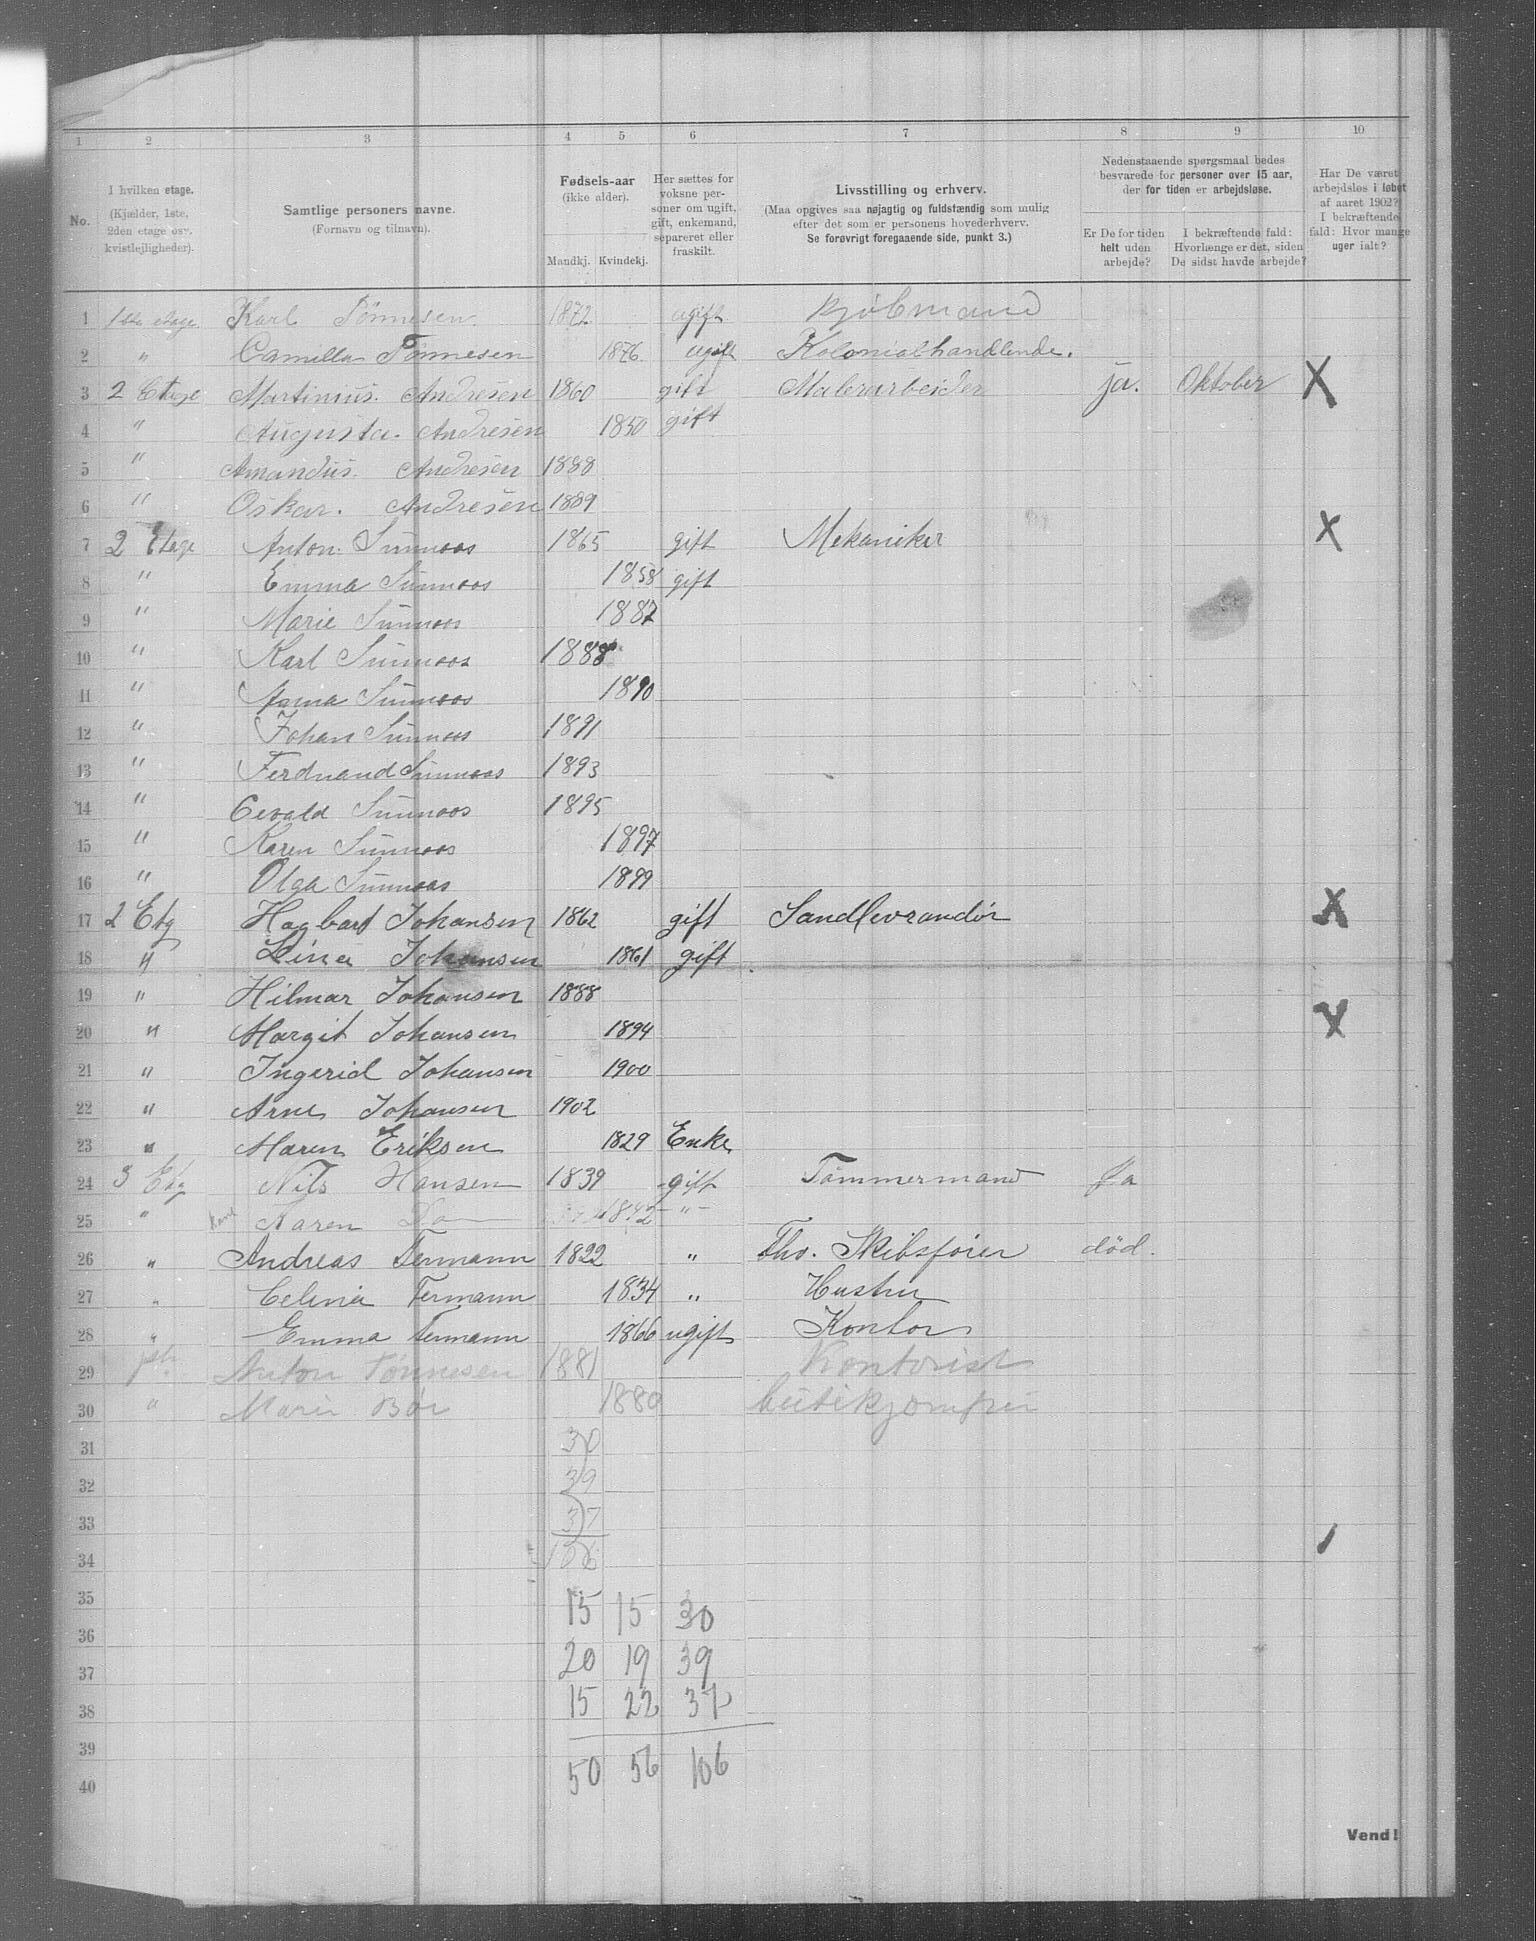 1 2 3 4 5 6 7 8 9 10
No. I hvilken etage. (Kjælder, 1ste, 2den etage osv. kvistlejligheder). Samtlige personers navne. (Fornavn og tilnavn). Fødsels-aar (ikke alder). Mandkj. Kvindekj. Her sættes for voksne personer om ugift, gift, enkemand, separeret eller fraskilt. Livsstilling og erhverv. (Maa opgives saa nøjagtig og fuldstændig som mulig efter det som er personens hovederhverv. Se forøvrigt foregaaende side, punkt 3.) Nedenstaaende spørgsmaal bedes besvarede for personer over 15 aar, der for tiden er arbejdsløse. Er De for tiden helt uden arbejde? I bekræftende fald: Hvorlænge er det, siden De sidst havde arbejde? Har De været arbejdsløs i løbet af aaret 1902? I bekræftende fald: Hvor mange uger ialt?
1 1ste etage Karl Tønnesen 1872 ugift kjøbmand
2 " Camilla Tønnesen 1876 ugift Kolonialhandlende.
3 2 Etage Martinius. Andresen 1860 gift Malerarbeider ja. Oktober X
4 " Augusta. Andresen 1850 gift
5 " Amandus. Andresen 1888
6 " Oskar. Andresen 1889
7 2 Etage Anton Sunnaas 1865 gift Mekaniker X
8 " Emma Sunnaas 1858 gift
9 " Marie Sunnaas 1887
10 " Karl Sunnaas 1888
11 " Anna Sunnaas 1890
12 " Johan Sunnaas 1891
13 " Ferdnand Sunnaas 1893
14 " Sunnaas 1895
15 " Karen Sunnaas 1897
16 " Olga Sunnaas 1899
17 2 Etg Hagbart Johansen 1862 gift Sandlevrandør X
18 " Lina Johansen 1861 gift
19 " Hilmar Johansen 1888
20 " Margit Johansen 1894 X
21 " Ingerid Johansen 1900
22 " Arne Johansen 1902
23 " Maren Eriksen 1829 Enke
24 3 Etg Nils Hansen 1839 gift Tømmermand Ja
25 " Karen Do 1842 - " -
26 " Andreas Termann 1822 " Fhv. Skibsfører død.
27 " Celina Termann 1834 " Hustru
28 " Emma Termann 1866 ugift Kontor
29 Anton Tønnesen 1881 Kontorist
30 " Marie Bør 1880 butikjomfru
31 30
32 39
33 37
34 106
35 15 15 30
36
37 20 19 39
38 15 22 37
39
40 50 56 106
Vend!